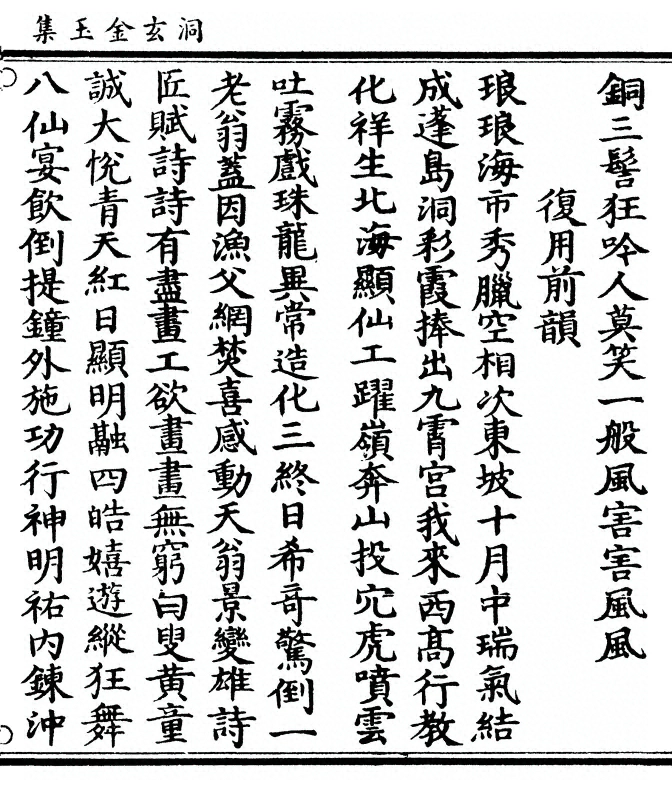 洞玄金玉集
銅三髻狂吟人莫笑一般風害害風風
復用前韻
琅琅海市秀臘空相次東坡十月中瑞氣結
成蓬島洞彩霞捧出九霄宮我來西髙行教
化祥生北海顯仙工躍嶺奔山投穴虎噴雲
吐霧戲珠龍異常造化三終日希哥驚倒一
老翁蓋因漁父網焚喜感動天翁景變雄詩
匠賦詩詩有盡畫工欲畫畫無窮白叟黄童
誠大恱青天紅日顯明融四皓嬉遊縱狂舞
八仙宴飲倒提鐘外施功行神明祐内鍊沖